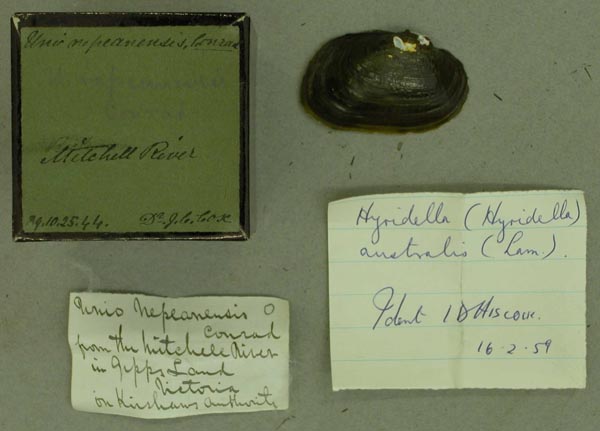 Unio nepeanensis, Conrad
Mitchell River
29.10.25.44. Dr. J. C. Cox
Hyridella (Hyridella)
australis (Lam.).
Ident I D Hiscock.
16-2-59
Unio Nepeanensis
Conrad
from the Mitchell River
in Gipps Land
Victoria
on Kirshaws authority